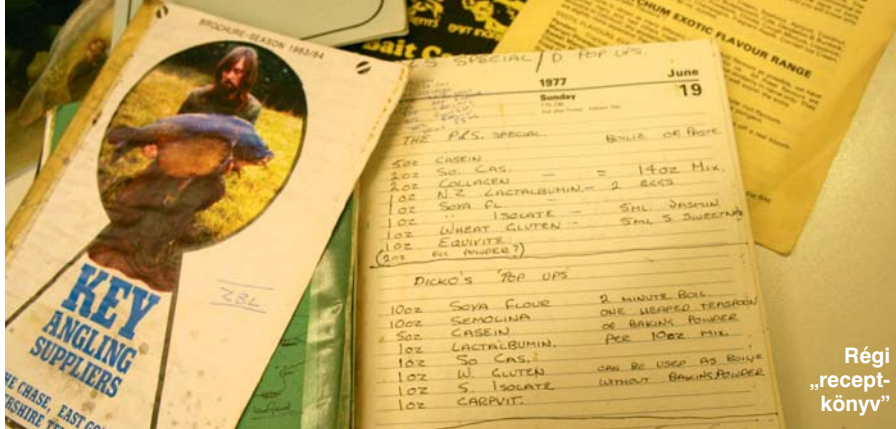 BROCHURE-SEASON 1983/84
KEY
ANGLING
SUPPLIERS
THE CHASE, EAST GO
ZBL
Bait Co
CHUM EXOTIC FLAVOUR RANGE
&S SPECIAL / D POP UPS.
1977 June
Sunday 19
THE P&S. SPECIAL. BOILIE OR PASTE
5oz CASEIN
2oz SO. CAS.
2oz COLLAGEN = 14oz MIX.
1oz N.Z LACTALBUMIN - 2 EGGS
1oz SOYA FL
1oz " ISOLATE - 5ML JASMIN
1oz WHEAT GLUTEN - 5ML S SWEETNR
1oz EQUIVITE
(2oz EGG POWDER?)
DICKO'S 'POP UPS'
10oz SOYA FLOUR 2 MINUTE BOIL
10oz SEMOLINA ONE HEAPED TEASPOON
5oz CASEIN OF BAKING POWDER
1oz LACTALBUMIN. PER 10oz MIX.
1oz SO CAS.
1oz W. GLUTEN CAN BE USED AS BOILIE
1oz S. ISOLATE WITHOUT BAKING POWDER
1oz CARPVIT.
Régi
„recept-
könyv”